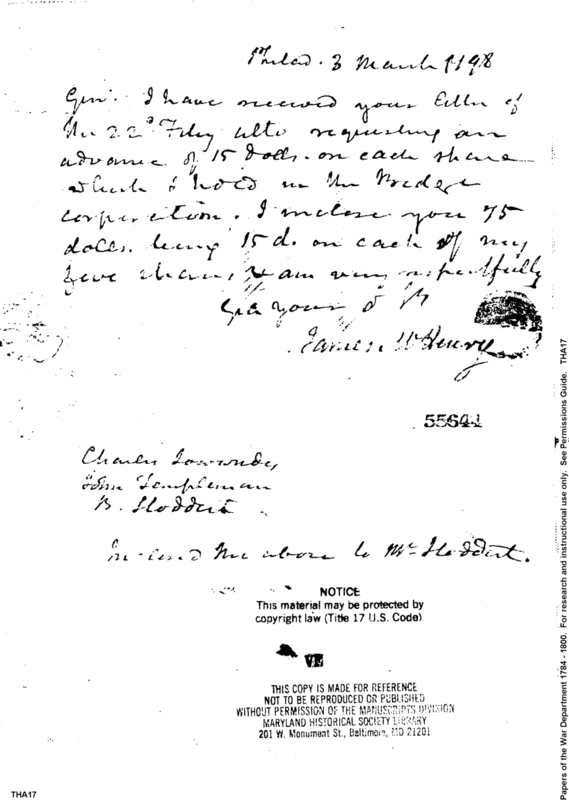 Philad. 3 March 1798
Gen. I have received your letter of
the 22d Feby ulto requesting an
advance of 15 dolls. on each share
which I hold in the Bridge
corporation. I inclose you 75
dolls. being 15 d. on each of my
five shares, & am very respectfully
your o
James McHenry
55641
Charles Lowndes,
John Templeman
B. Stoddert
Inclosed the above to Mr Stoddert.
NOTICE
This material may be protected by
copyright law (Title 17 U.S. Code)
THIS COPY IS MADE FOR REFERENCE
NOT TO BE REPRODUCED OR PUBLISHED
WITHOUT PERMISSION OF THE MANUSCRIPTS DIVISION
MARYLAND HISTORICAL SOCIETY LIBRARY
201 W. Monument St., Baltimore, MD 21201
THA17
Papers of the War Department 1784 - 1800. For research and instructional use only. See Permissions Guide. THA17